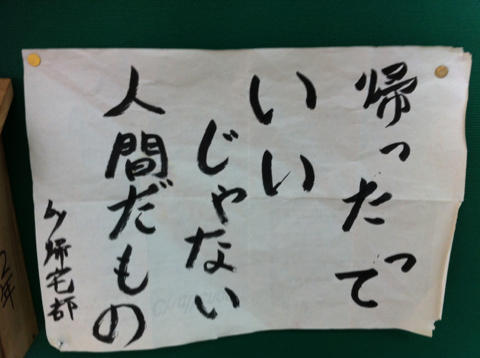 帰ったって
いい
じゃない
人間だもの
by帰宅部
2年